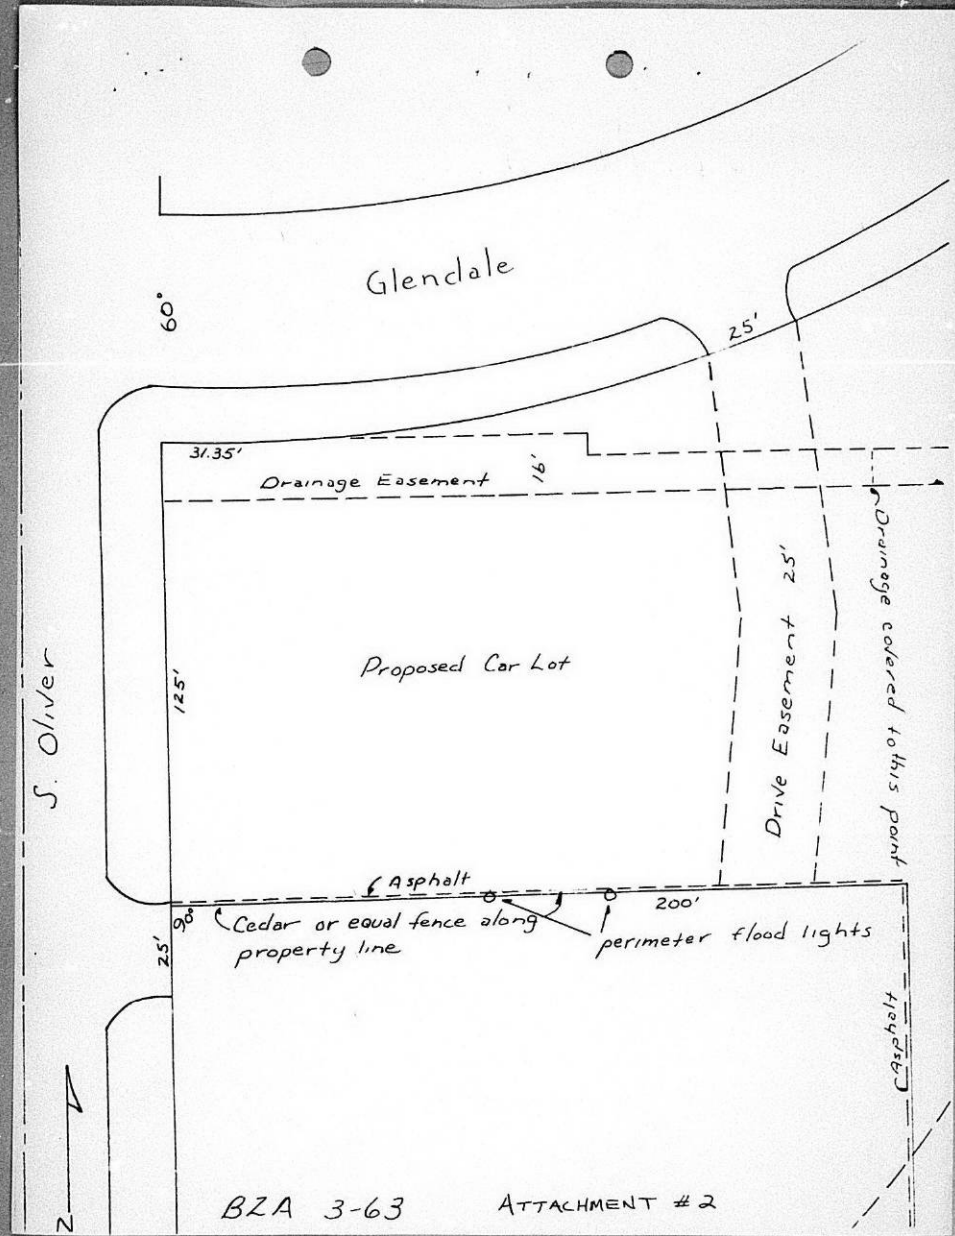 Glendale
60°
25'
31.35'
Drainage Easement
16'
Drainage covered to this point
Drive Easement 25'
Proposed Car Lot
125'
S. Oliver
Asphalt
90°
Cedar or equal fence along
property line
200'
perimeter flood lights
25'
Asphalt
N
BZA 3-63 ATTACHMENT #2